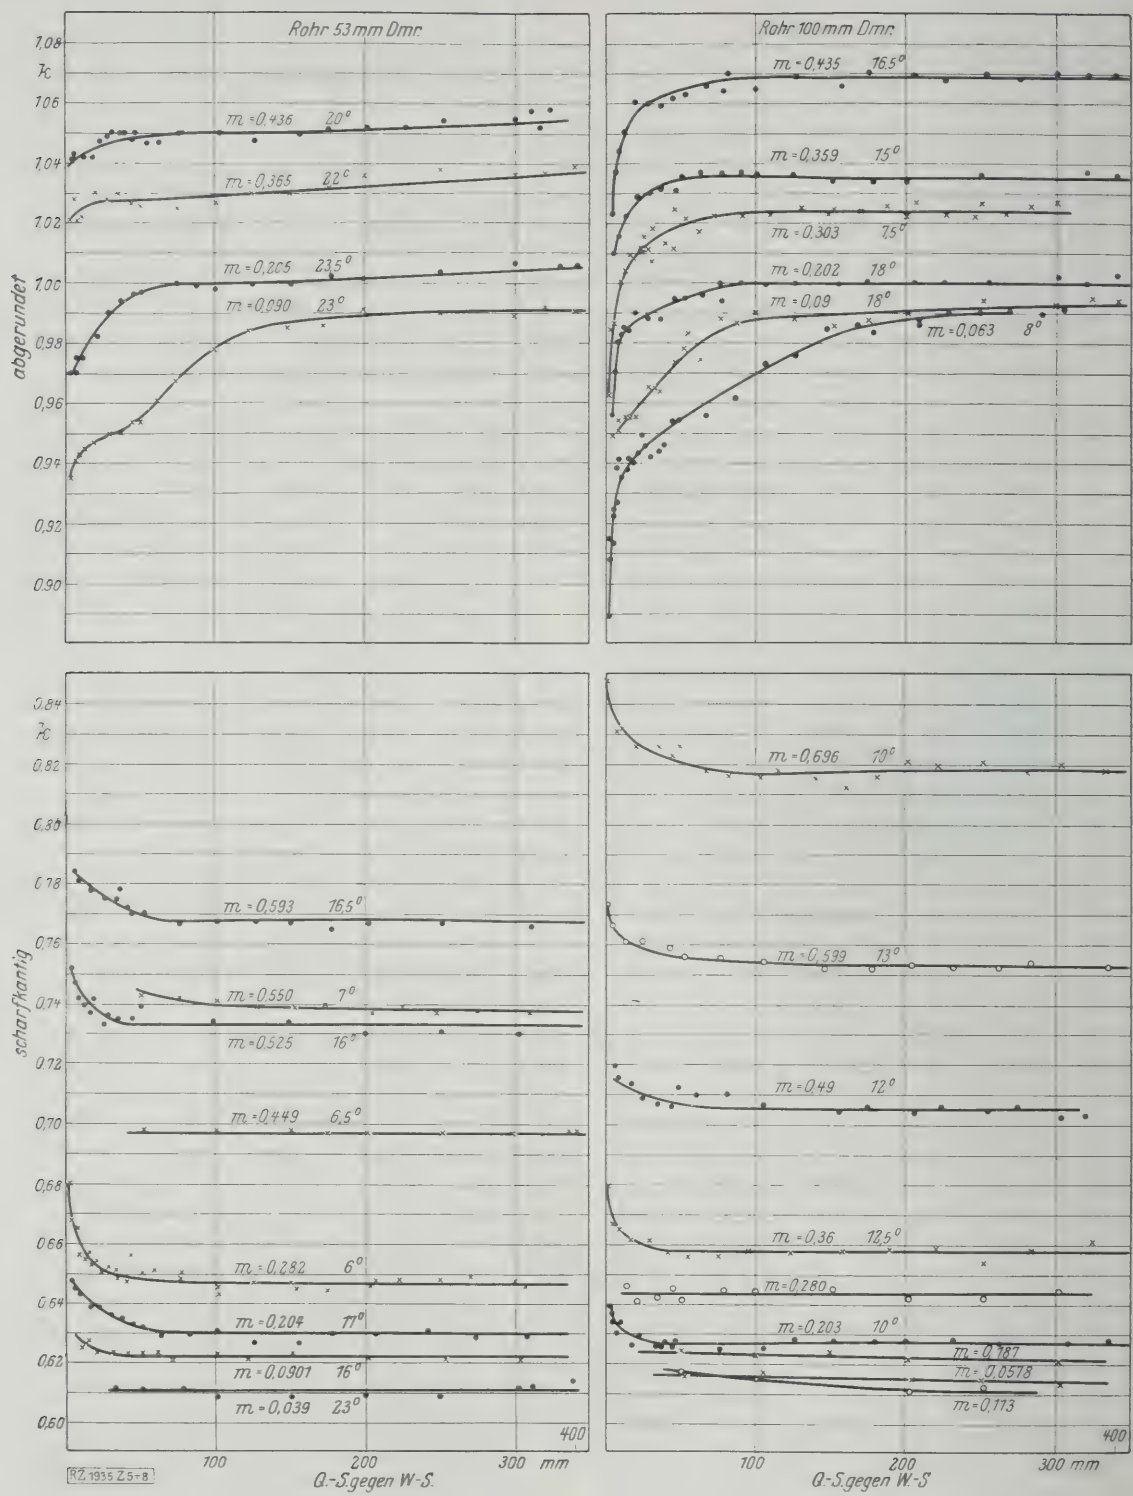 Rohr 53 mm Dmr.
1,08
1,06
1,04
1,02
1,00
0,98
0,96
0,94
0,92
0,90
abgerundet
m = 0,436 20°
m = 0,365 22°
m = 0,205 23,5°
m = 0,090 23°
Rohr 100 mm Dmr.
m = 0,435 16,5°
m = 0,359 15°
m = 0,303 7,5°
m = 0,202 18°
m = 0,09 18°
m = 0,063 8°
0,84
0,82
0,80
0,78
0,76
0,74
0,72
0,70
0,68
0,66
0,64
0,62
0,60
scharfkantig
m = 0,593 16,5°
m = 0,550 7°
m = 0,525 16°
m = 0,449 6,5°
m = 0,282 6°
m = 0,204 11°
m = 0,0901 16°
m = 0,039 23°
400
100 200 300 mm
Q.-S. gegen W.-S.
RZ 1935 Z 5-8
m = 0,696 10°
m = 0,599 13°
m = 0,49 12°
m = 0,36 12,5°
m = 0,280
m = 0,203 10°
m = 0,187
m = 0,0578
m = 0,113
400
100 200 300 mm
Q.-S. gegen W.-S